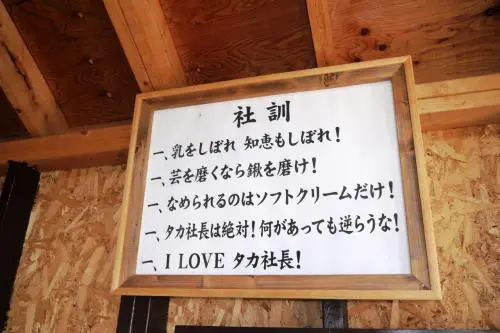 社訓
一、乳をしぼれ 知恵もしぼれ!
一、芸を磨くなら鍬を磨け!
一、なめられるのはソフトクリームだけ!
一、タカ社長は絶対!何があっても逆らうな!
一、I LOVE タカ社長!